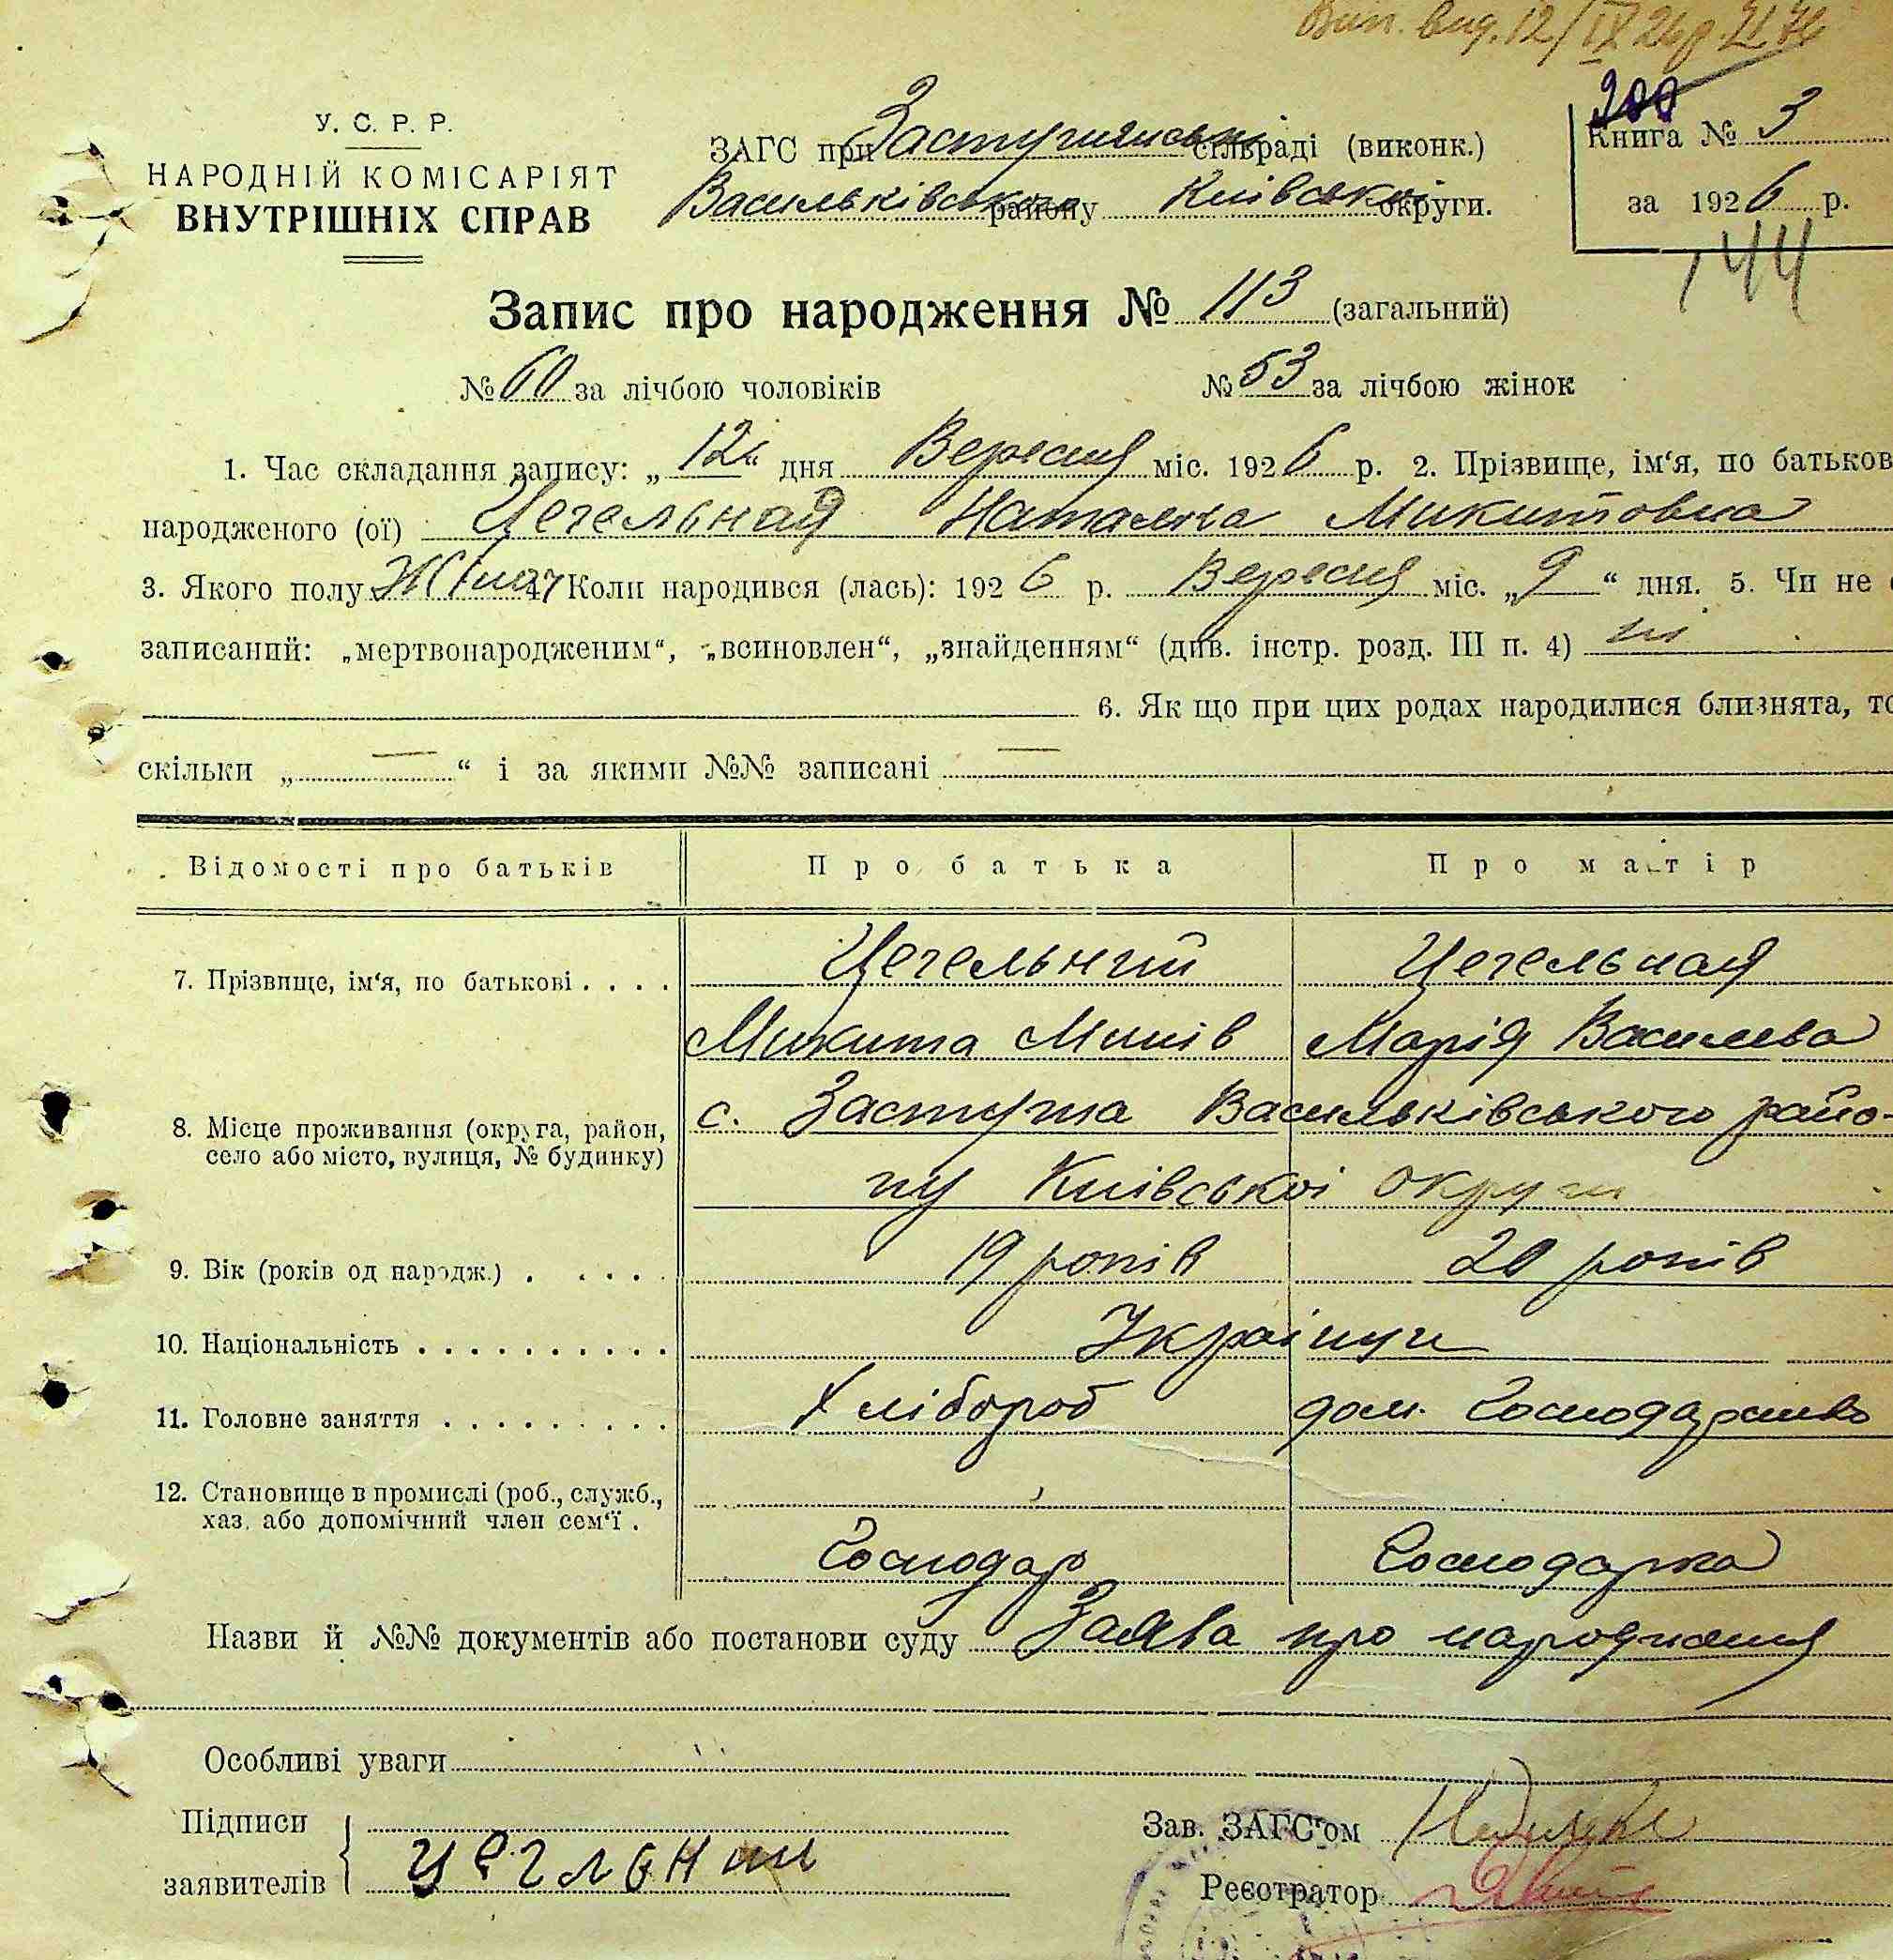 Вип. вид. 12/IX 26 р.
У. С. Р. Р.
НАРОДНІЙ КОМІСАРІЯТ
ВНУТРІШНІХ СПРАВ
ЗАГС при Застугнянськ сільраді (виконк.)
Васильківського району Київської округи.
200
Книга № 3
за 1926 р.
144
Запис про народження № 113 (загальний)
№ 60 за лічбою чоловіків № 53 за лічбою жінок
1. Час складання запису: „ 12 “ дня Вересня міс. 1926 р. 2. Прізвище, ім‘я, по батьков
народженого (ої) Цегельная Наталия Микитовна
3. Якого полу 4. Коли народився (лась): 1926 р. Вересня міс. „ 9 “ дня. 5. Чи не
записаний: „мертвонародженим“, „всиновлен“, „знайденням“ (див. інстр. розд. III п. 4) ні
6. Як що при цих родах народилися близнята, то
скільки „ — “ і за якими №№ записані —
Відомості про батьків Про батька Про матір
7. Прізвище, ім‘я, по батькові . . . . Цегельний Цегельная
Микита Минів Марія Васильева
8. Місце проживання (округа, район,
село або місто, вулиця, № будинку)
с. Застугна Васильківського райо-
ну Київської округи
9. Вік (років од народж.) . . . . . 19 років 20 років
10. Національність . . . . . . . . . . Українци
11. Головне заняття . . . . . . . . . Хлібороб дом. Господарство
12. Становище в промислі (роб., служб.,
хаз. або допомічний член сем‘ї .
Господар Господарка
Назви й №№ документів або постанови суду Заява про народження
Особливі уваги
Підписи
заявителів цегльний
Зав. ЗАГС‘ом
Реєстратор